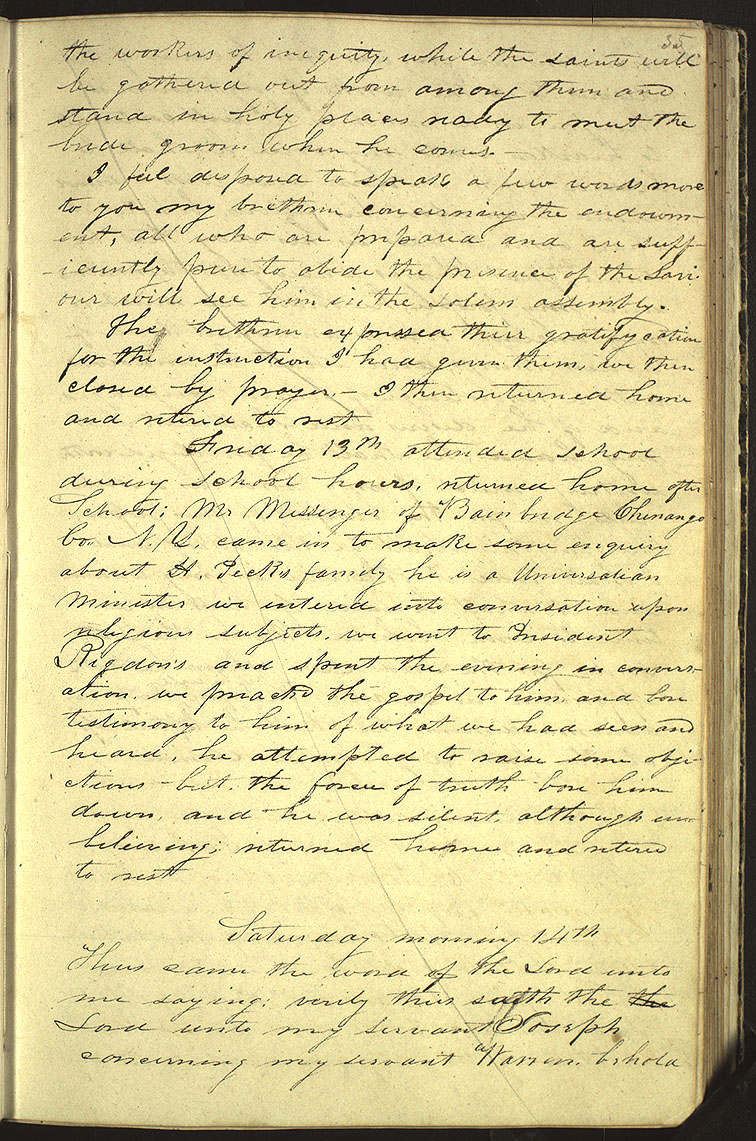 35
the workers of iniquity, while the saints will
be gathered out from among them and
stand in holy places ready to meet the
bride groom when he comes.—
I feel disposed to speak a few words more
to you my brethren concerning the endowm-
ent, all who are prepared and are suff-
-iciently pure to abide the presence of the Savi-
our will see him in the solem assembly.
The brethren expressed their gratifycation
for the instruction I had given them, we then
closed by prayer.— I then returned home
and retired to rest
Friday 13th attended school
during school hours, returned home after
School; Mr Messenger of Bainbridge Chenango
Co. N.Y. came in to make some enquiry
about H. Peck's family he is a Universalian
Minister we entered into conversation upon
religious subjects. we went to President
Rigdon's and spent the evening in convers-
ation. we preachd the gospel to him, and bore
testimony to him of what we had seen and
heard, he attempted to raise some obje-
ctions but the force of truth bore him
down, and he was silent, although un-
believing; returned home and retired
to rest
Saturday morning 14th
Thus came the word of the Lord unto
me saying; verily thus saith the the
Lord unto my servant Joseph
concerning my servant Warren. behold